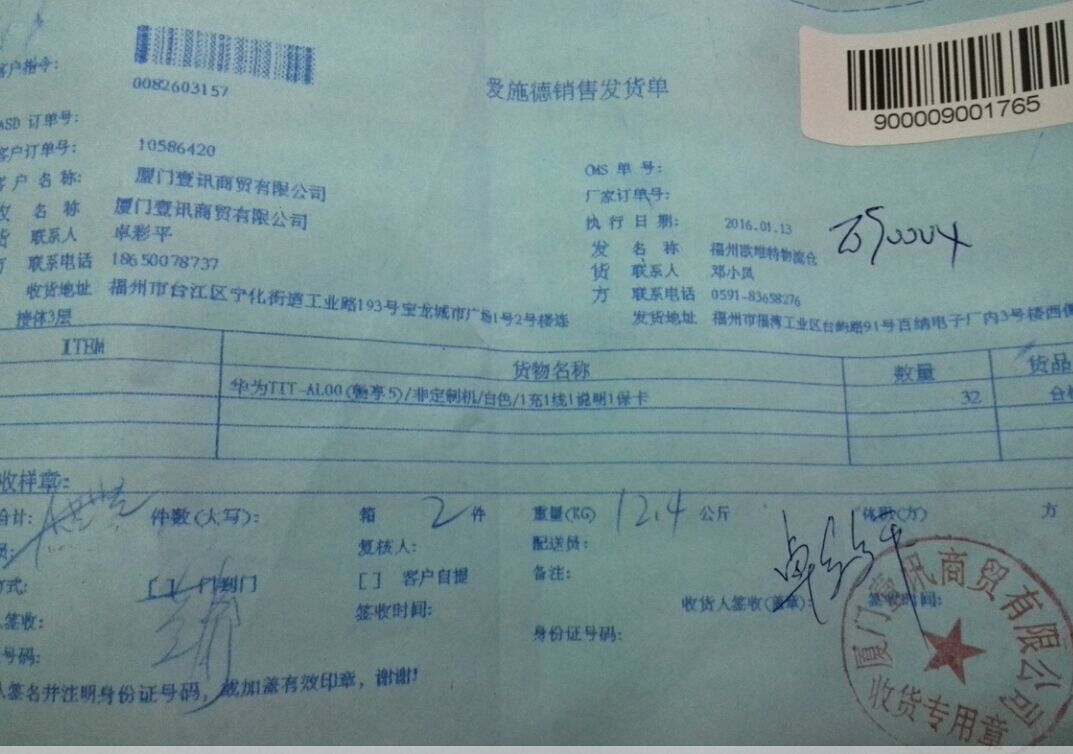 客户指令:
0082603157
爱施德销售发货单
900009001765
ASD 订单号:
客户订单号: 10586420
客户名称: 厦门壹讯商贸有限公司
收 名 称 厦门壹讯商贸有限公司
货 联系人 卓彩平
方 联系电话 18650078737
收货地址 福州市台江区宁化街道工业路193号宝龙城市广场1号2号楼连
接体3层
OMS 单 号:
厂家订单号:
执 行 日 期: 2016.01.13
发 名 称 福州欧唯特物流仓
货 联系人 邓小凤
方 联系电话 0591-83658276
发货地址 福州市福湾工业区台屿路91号百纳电子厂内3号楼西
ITEM 货物名称 数量 货品
华为TIT-AL00(畅享5)/非定制机/白色/1充1线1说明1保卡 32 合格
收样章:
合计: 件数(大写): 箱 2 件 重量(KG) 12.4 公斤 体积(方) 方
员: 复核人: 配送员:
方式: [ ] 门到门 [ ] 客户自提 备注:
人签收: 签收时间: 收货人签收(盖章): 卓彩平 签收时间:
号码: 身份证号码:
人签名并注明身份证号码，或加盖有效印章，谢谢!
厦门壹讯商贸有限公司
收货专用章